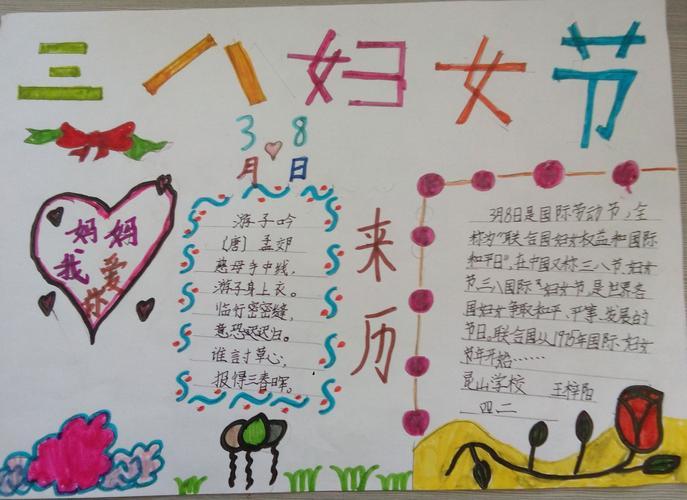 三八妇女节
3月8日
妈妈
我爱你
游子吟
(唐) 孟郊
慈母手中线,
游子身上衣。
临行密密缝,
意恐迟迟归。
谁言寸草心,
报得三春晖。
来历
3月8日是国际劳动节,全
称为"联合国妇女权益和国际
和平日",在中国又称三八节、妇女
节、三八国际妇女节。是世界各
国妇女争取和平、平等、发展的
节日。联合国从1975年国际妇女
节年开始……
昆山学校 王梓阳
四二